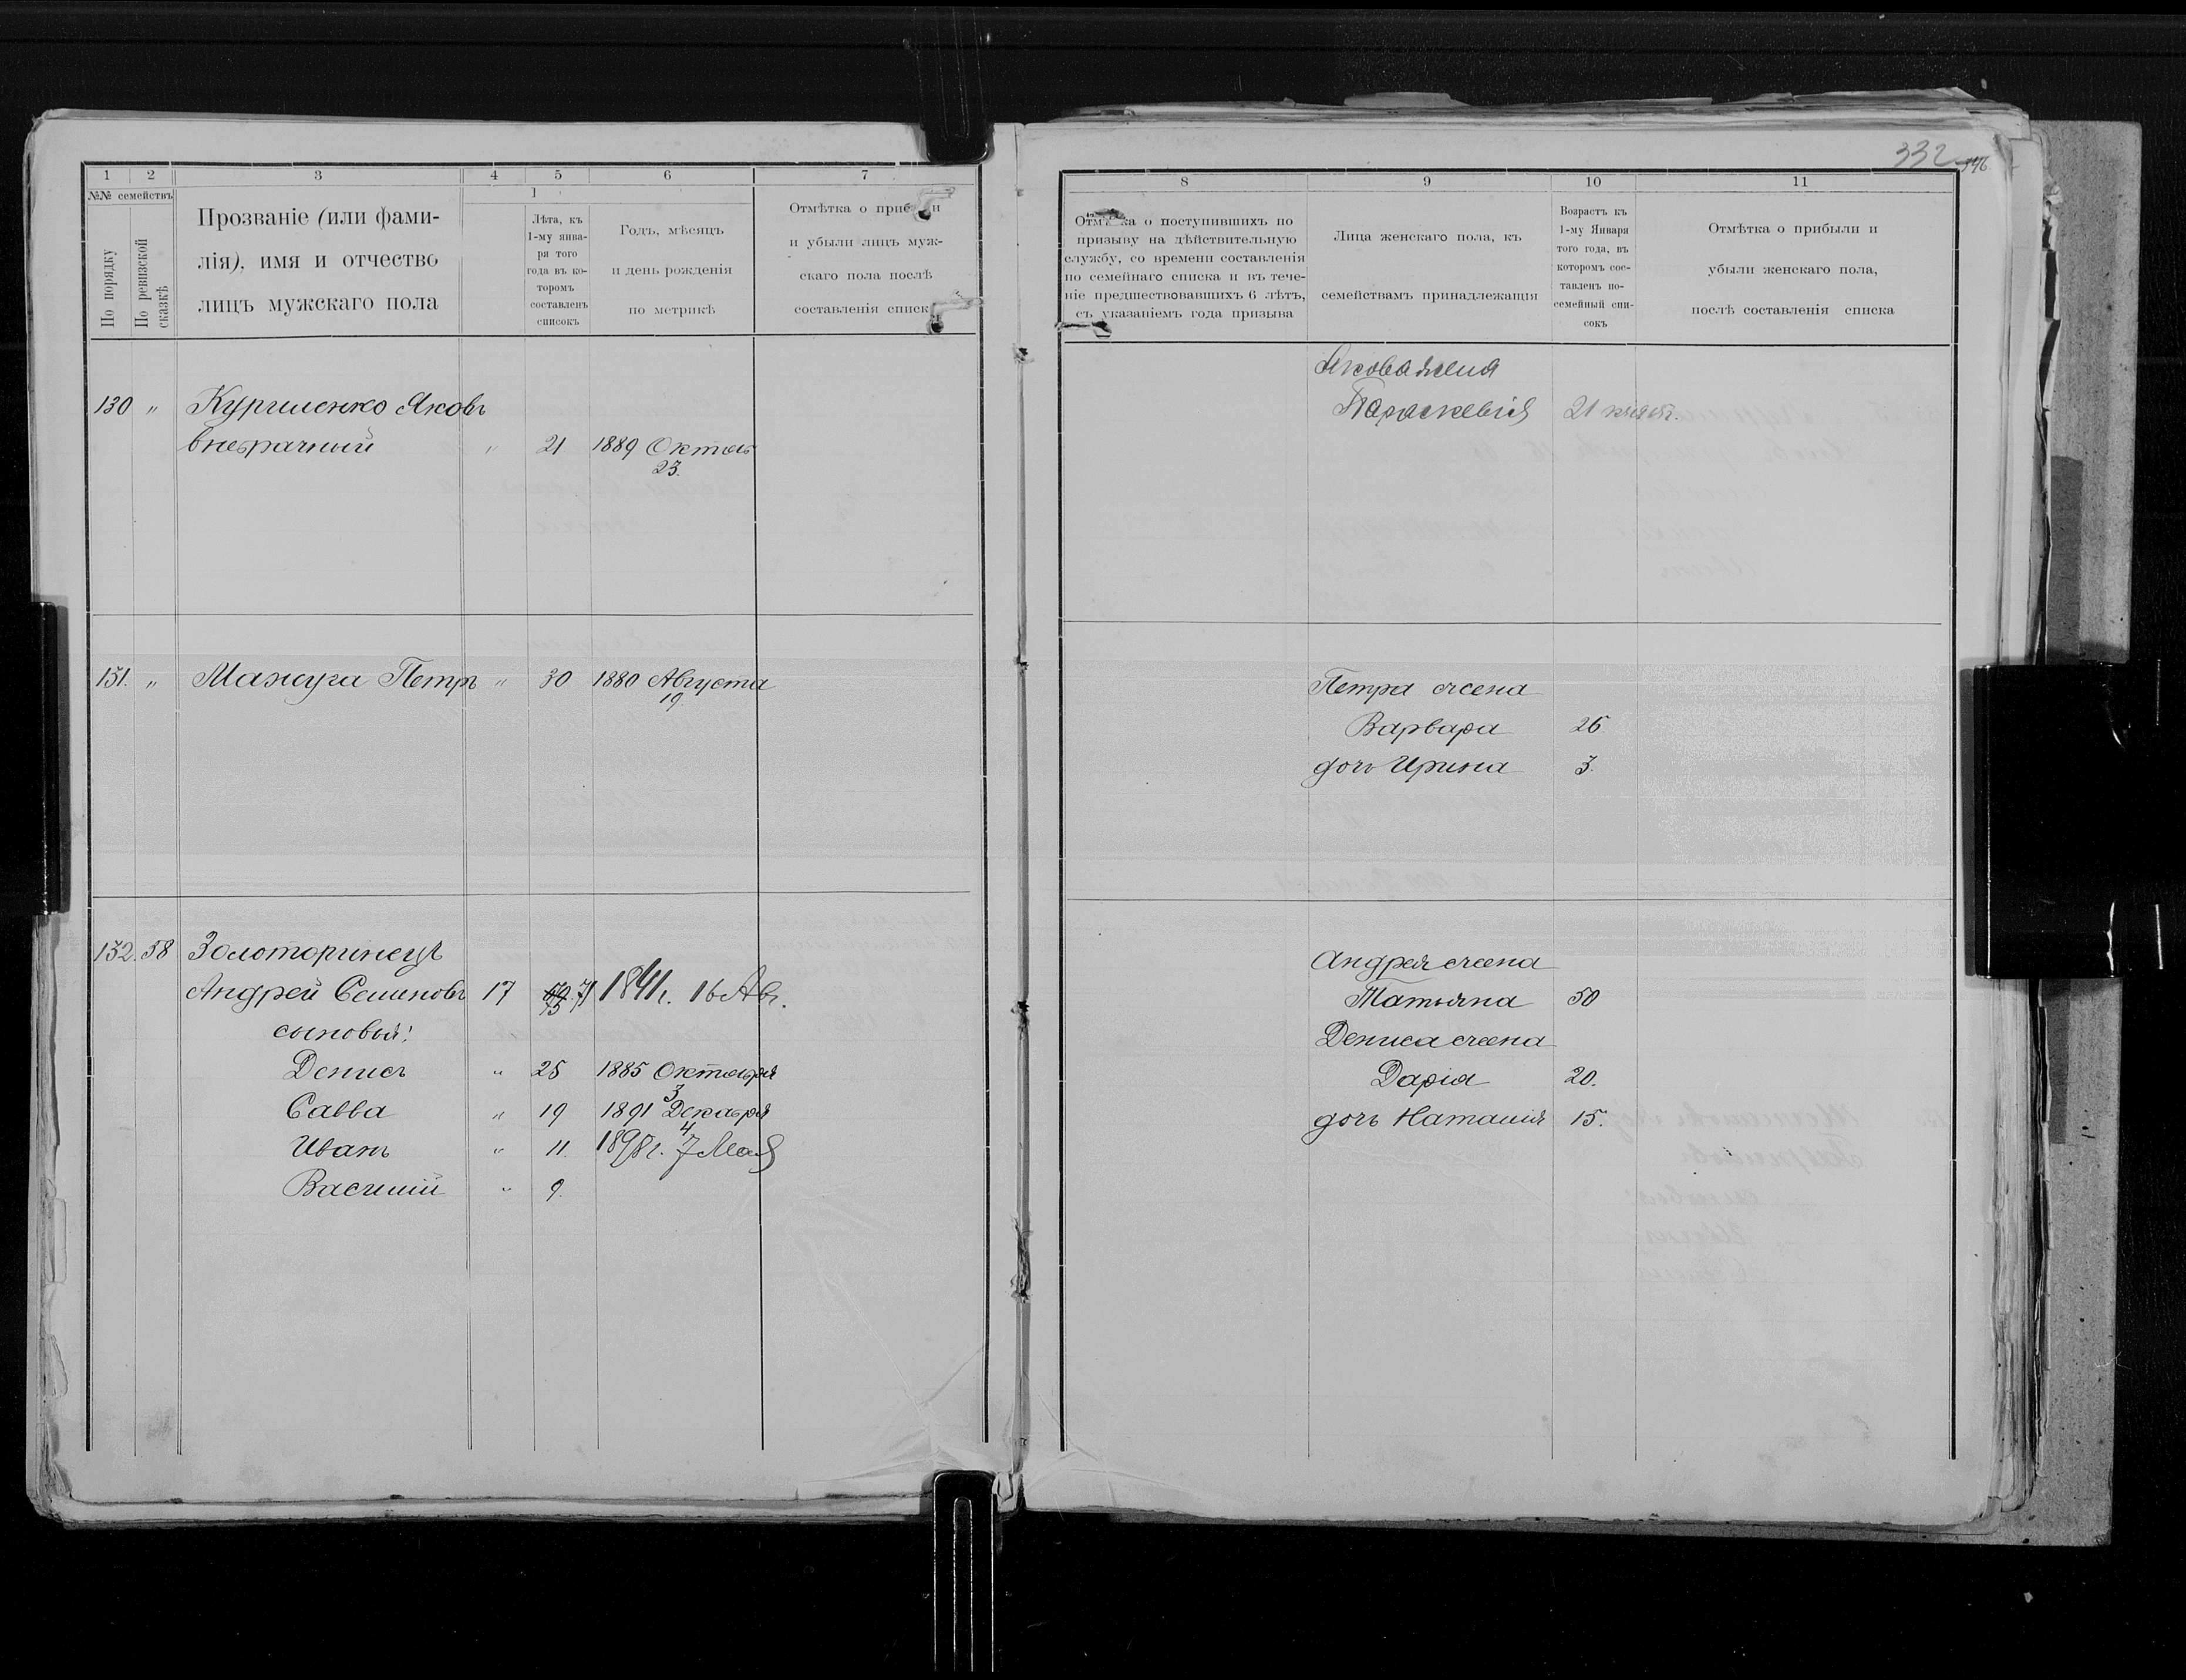 1 2 3 4 5 6 7
№№ семействъ
По порядку
По ревизской сказкѣ
Прозваніе (или фами-
лія), имя и отчество
лицъ мужскаго пола
1
Лѣта, къ
1-му янва-
ря того
года въ ко-
торомъ
составленъ
списокъ
Годъ, мѣсяцъ
и день рожденія
по метрикѣ
Отмѣтка о приб и
и убыли лицъ муж-
скаго пола послѣ
составленія списк
130 " Куриленко Яковъ
внебрачный " 21 1889 Октяб
23.
131. " Мажуга Петръ " 30 1880 Августа
19
132. 58 Золоторинецъ
Андрей Семиновъ 17 71 1841г. 16 Авг.
75
сыновья:
Денисъ " 25 1885 Октября
3
Савва " 19 1891 Декабря
4
Иванъ " 11. 1898г. 7 Мая
Василій " 9.
332
346
8 9 10 11
Отм ка о поступившихъ по
призыву на дѣйствительную
службу, со времени составленія
по семейнаго списка и въ тече-
ніе предшествовавшихъ 6 лѣтъ,
съ указаніемъ года призыва
Лица женскаго пола, къ
семействамъ принадлежащія
Возрастъ къ
1-му Января
того года, въ
которомъ сос-
тавленъ по-
семейный спи-
сокъ
Отмѣтка о прибыли и
убыли женскаго пола,
послѣ составленія списка
Якова жена
Параскевія 21
Петра жена
Варвара 26
дочь Ирина 3.
Андрея жена
Татьяна 50
Дениса жена
Дарія 20.
дочь Наталія 15.